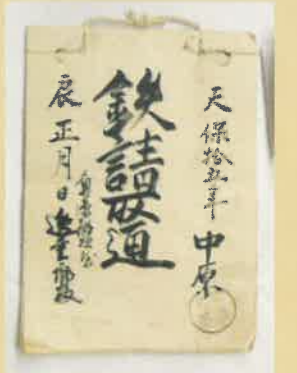 天保拾五年
中原
鉄請取通
辰正月日
殿